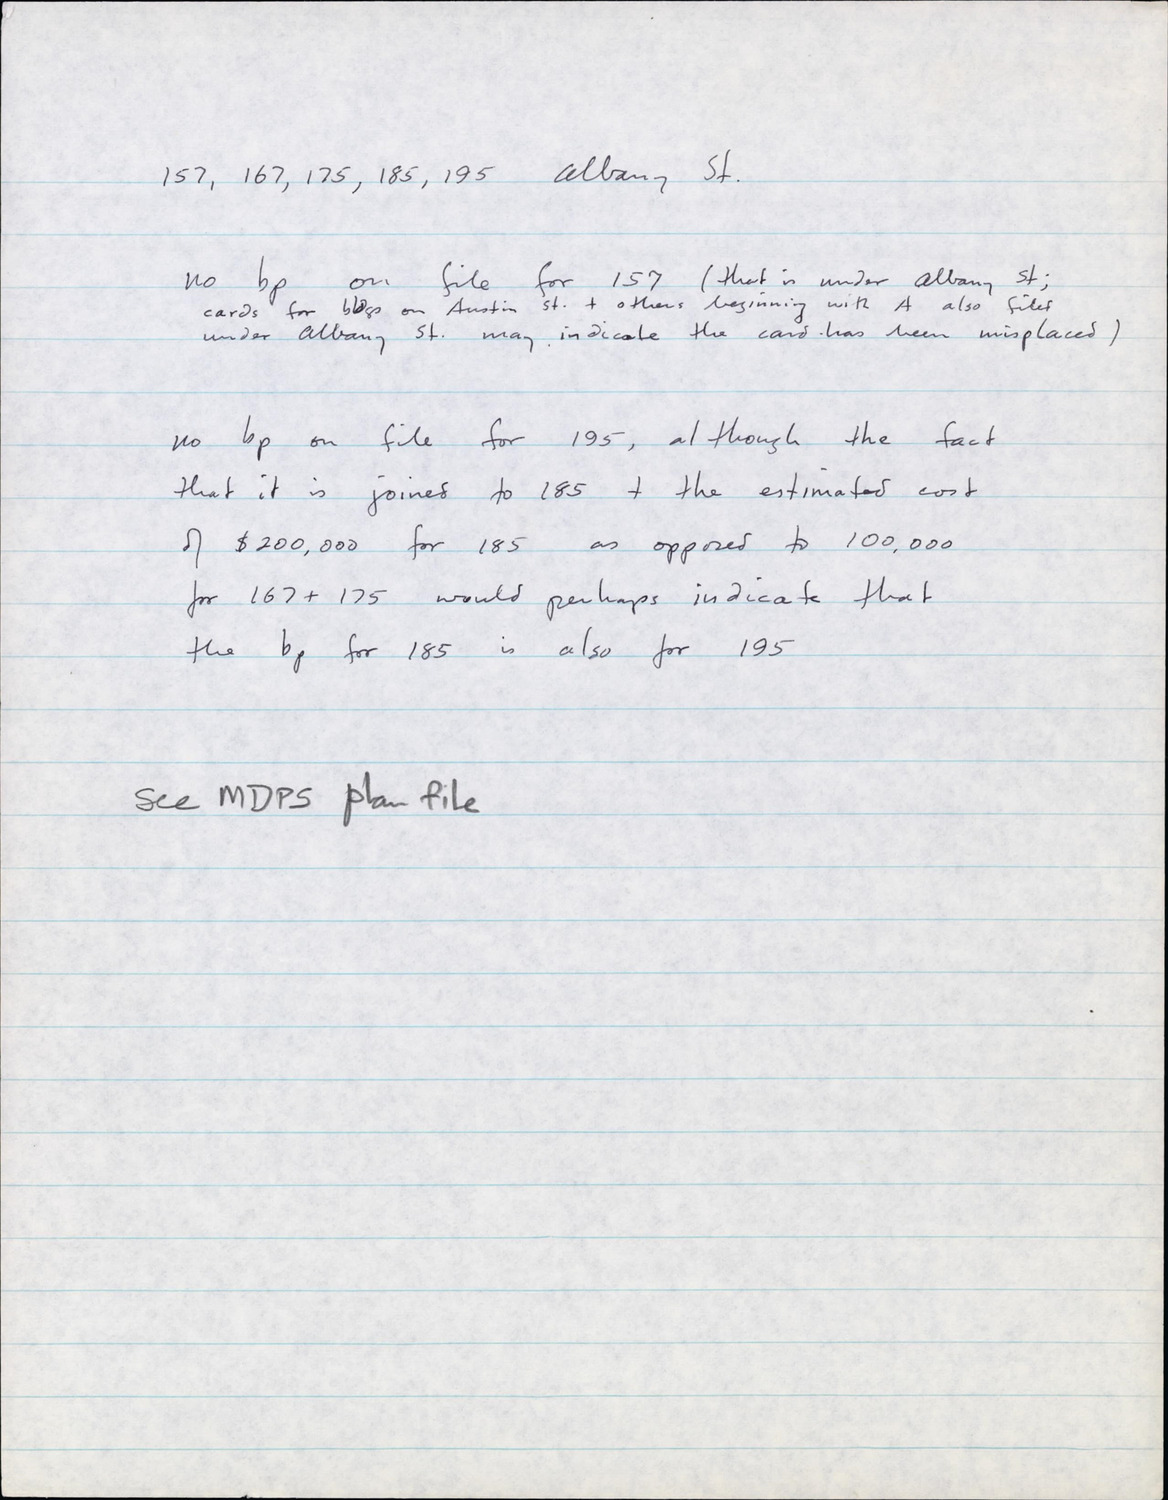 157, 167, 175, 185, 195 Albany St.
no bp on file for 157 (that is under Albany St;
cards for bldgs on Austin St. + others beginning with A also filed
under Albany St. may indicate the card has been misplaced)
no bp on file for 195, although the fact
that it is joined to 185 + the estimated cost
of $200,000 for 185 as opposed to 100,000
for 167 + 175 would perhaps indicate that
the bp for 185 is also for 195
see MDPS plan file